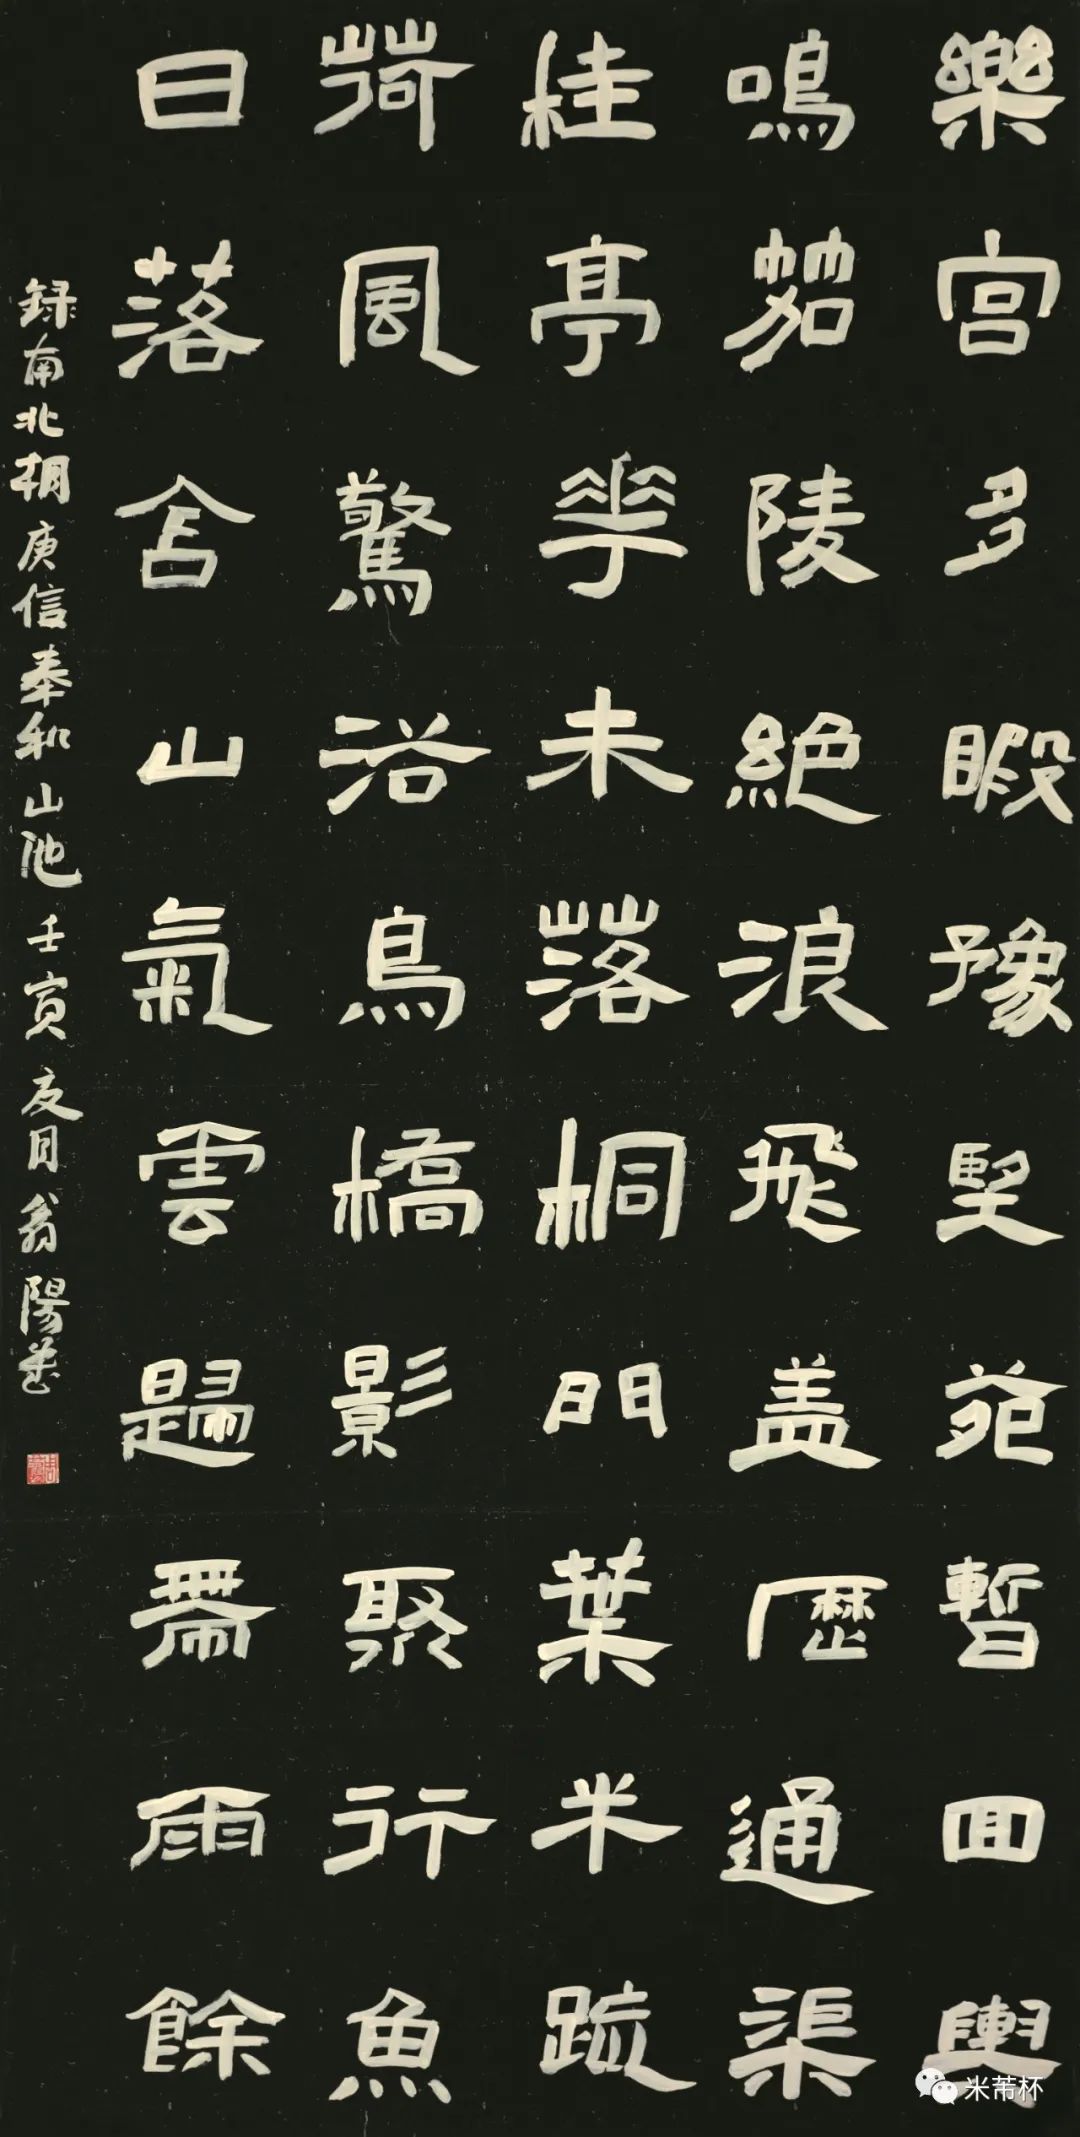 樂宮多暇豫望苑暫回輿
鳴笳陵絶浪飛盖歷通渠
桂亭華未落桐門葉半疏
荷風驚浴鳥橋影聚行魚
日落含山氣雲歸帶雨餘
録南北朝庾信奉和山池壬寅夏月翁陽
米芾杯